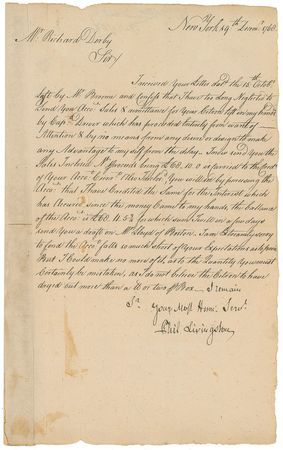 New York 19th Decemr. 1760
Mr. Richard Derby
Sir
I received Your Letter dated the 15th Octobr.
left by Mr. Browne and confess that I have too long Neglected to
send You your Accot. Sales & remittance for Your left in my hands
by Capt. which has proceeded intirely from want of
Attention & by no means from any desire or design to make
any Advantage to my self from the delay.
Sales Inclosed
of Your Accot. You will by persuing the
Accot. that I have Credited the Same for the Interest which
has Accrued since the money Came to my hands, the ballance
of the Accot. is for which sum I will in a few days
send You a draft on Mr. Lloyd of Boston. I am Extremely sorry
to find the Accot. falls so much short of Your Expectations
But I Could make no more of it, as to the Quantity You must
Certainly be mistaken, as I do not believe the Citron to have
dryed out more than a lb or two pr Box — I remain
Sr. Your Most Humle. Servt.
Phil. Livingston